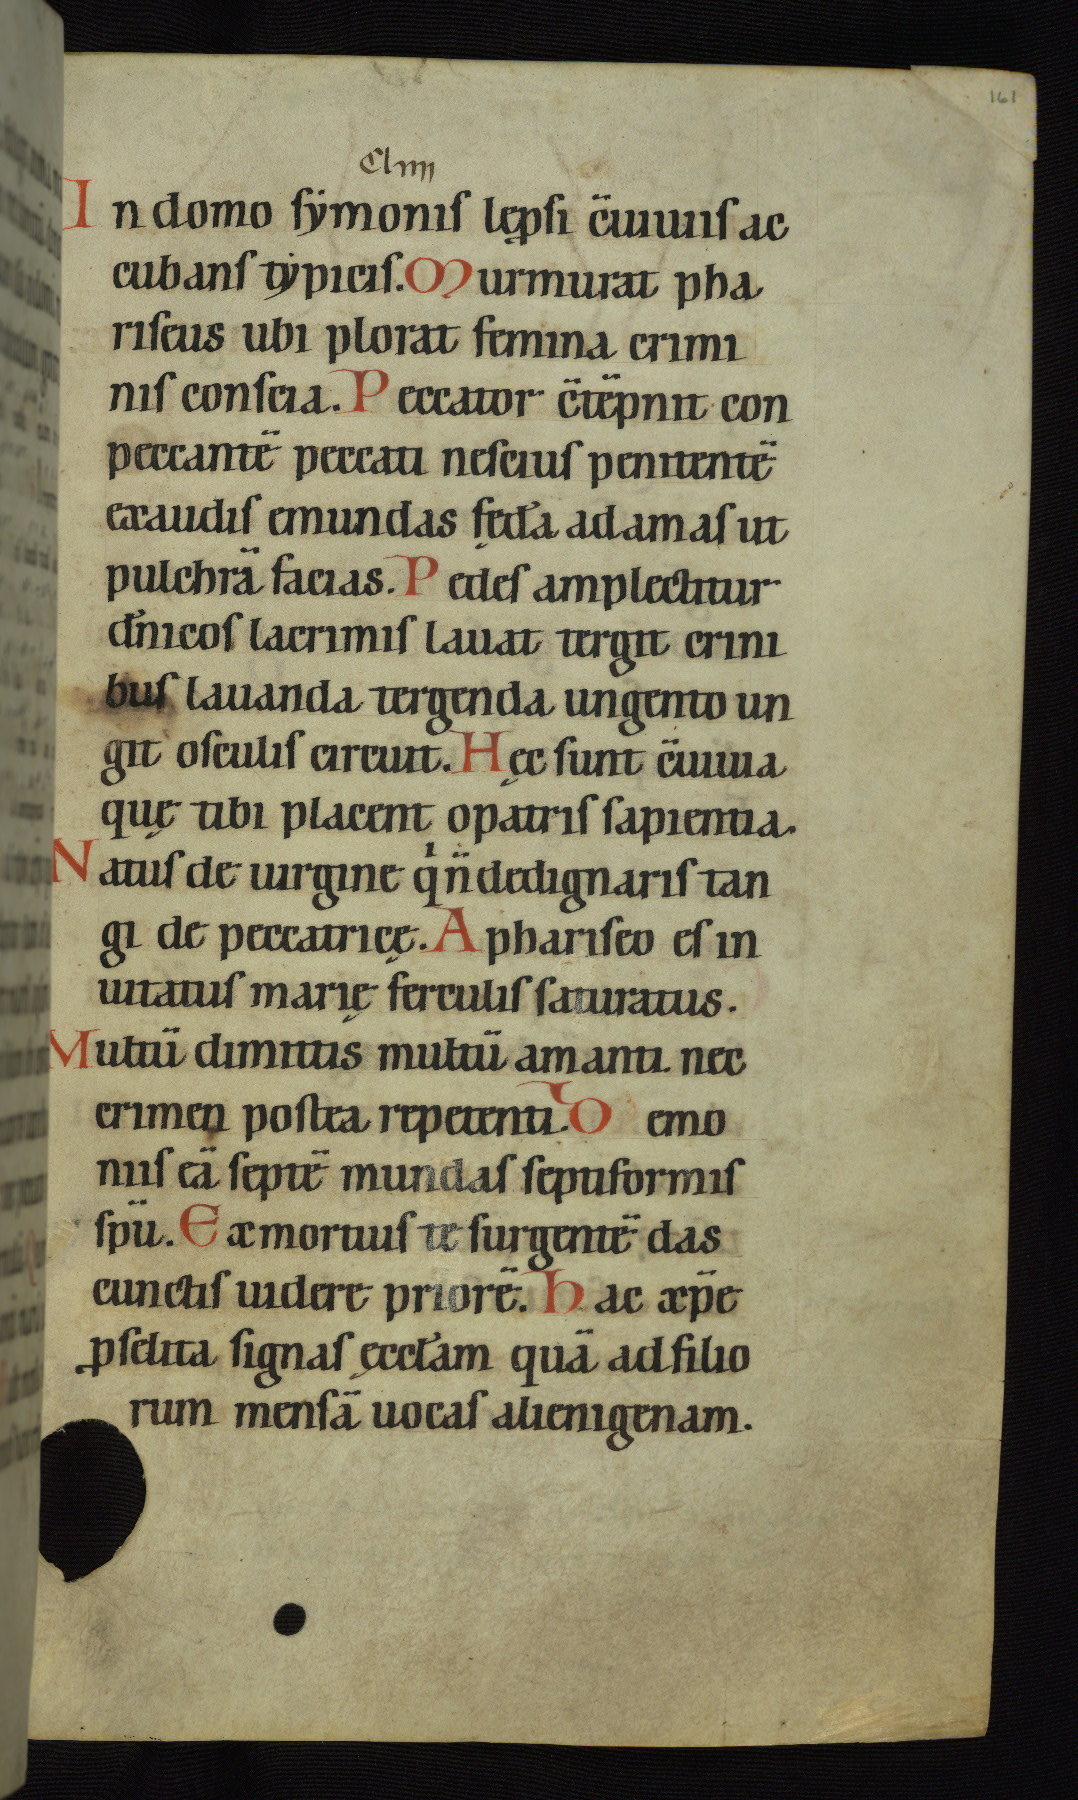 161
Cliiii
In domo sẏmonis lęp̱si c̄uiuiis ac
cubans tẏpicis. Murmurat pha
riseus ubi plorat femina crimi
nis conscia. Peccator c̄tēpnit con
peccantē peccati nescius penitentē
exaudis emundas fędā adamas ut
pulchrā facias. Pedes amplectitur
dn̄icos lacrimis lauat tergit crini
bus lauanda tergenda ungento un
git osculis circuit. Hęc sunt c̄uiuia
quę tibi placent o patris sapientia.
Natus de uirgine qⁱ n̄ dedignaris tan
gi de peccatricę. A phariseo es in
uitatus marię ferculis saturatus.
Multū dimittis multū amanti. nec
crimen postea repetenti. Demo
niis eā septē mundas septiformis
spū. Ex mortuis te surgentē das
cunctis uidere priorē. Hac xp̄e
ꝓselita signas ęccłam quā ad filio
rum mensā uocas alienigenam.